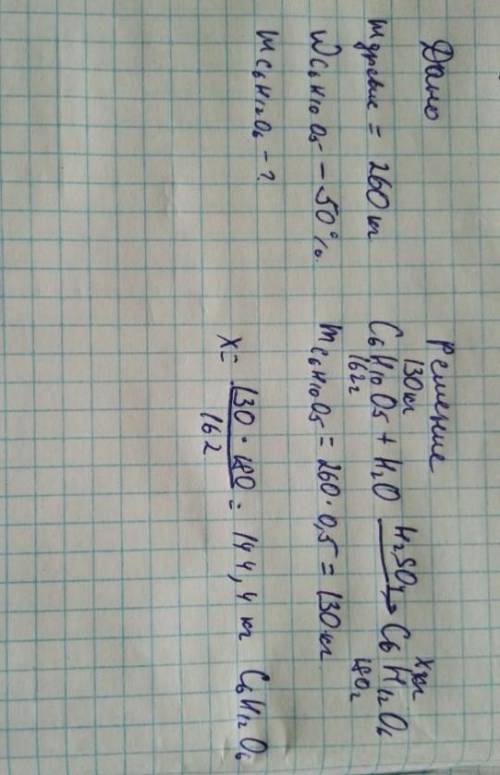 Дано
m древис = 260 кг
W C6H10O5 – 50%.
m C6H12O6 – ?
Решение
130 кг x кг
C6H10O5 + H2O H2SO4→ C6H12O6
162 г 180 г
m C6H10O5 = 260 · 0,5 = 130 кг
x = 130 · 180 / 162 = 144,4 кг C6H12O6